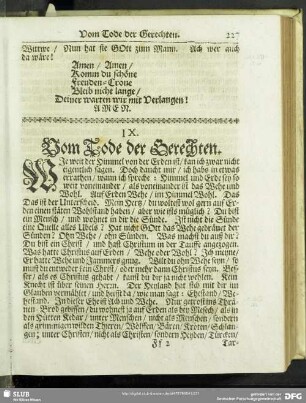 Vom Tode der Gerechten. 227
Wittwe / Nun hat sie GOtt zum Mann. Ach wer auch
da wäre!
Amen / Amen /
Komm du schöne
Freuden-Crone
Bleib nicht lange /
Deiner warten wir mit Verlangen!
AMEN.
IX.
Vom Tode der Gerechten.
WJe weit der Himmel von der Erden ist / kan ich zwar nicht
eigentlich sagen. Doch daucht mir / ich habs in etwas
errathen / wann ich spreche: Himmel und Erde sey so
weit voneinander / als voneinander ist das Wehe und
Wohl. Auf Erden Wehe / im Himmel Wohl. Das
Das ist der Unterscheid. Mein Hertz / du woltest wol gern auf Er-
den einen stäten Wohlstand haben / aber wie ists müglich? Du bist
ein Mensch / und wohnet in dir die Sünde. Ist nicht die Sünde
eine Quelle alles Übels? Hat nicht GOtt das Wehe gedräuet der
Sünden? Ohn Wehe / ohn Sünden. Was machst du auß dir?
Du bist ein Christ / und hast Christum in der Tauffe angezogen.
Was hatte Christus auf Erden / Wehe oder Wohl? Ich meine /
Er hatte Wehe und Jammers gnug. Wilt du ohn Wehe seyn / so
must du entweder kein Christ / oder mehr dann Christus seyn. Bes-
ser / als es Christus gehabt / kanst du ja nicht wollen. Kein
Knecht ist über seinen Herrn. Der Heyland hat sich mit dir im
Glauben vermählet / und heist da / wie man sagt: Ehestand / We-
hestand. In dieser Christ sich und Wehe. Nur getrost ins Thrä-
Brod gebissen / du wohnest ja auf Erden als der Mesech / als in
den Hütten Kedar / unter Menschen / nicht als Menschen / sondern
als grimmigen wilden Thieren / Wölffen / Bären / Kroten / Schlan-
gen; unter Christen / nicht als Christen / sondern Heyden / Türcken /
Ff 2 Tar-
SLUB
Wir führen Wissen.